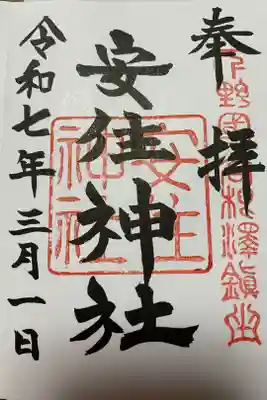 奉拝
下野國高根澤鎮坐
安住神社
安住
神社
令和七年三月一日